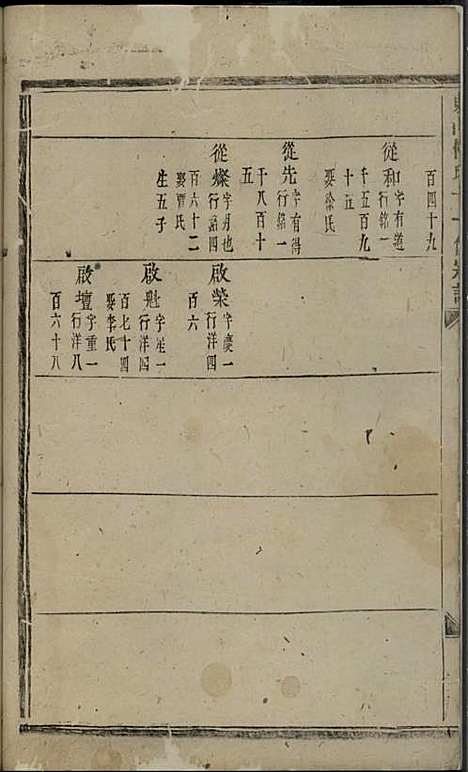 氏十一修宗譜
百四十九
從和字有道
行銘一
千五百九
十五
娶徐氏
從先字有得
行銘一
千八百十
五
從燦字月也
行銘四
百六十二
娶賈氏
生五子
啟榮字慶一
行洋四
百六
啟魁字星一
行洋四
百七十四
娶李氏
啟壇字重一
行洋八
百六十八